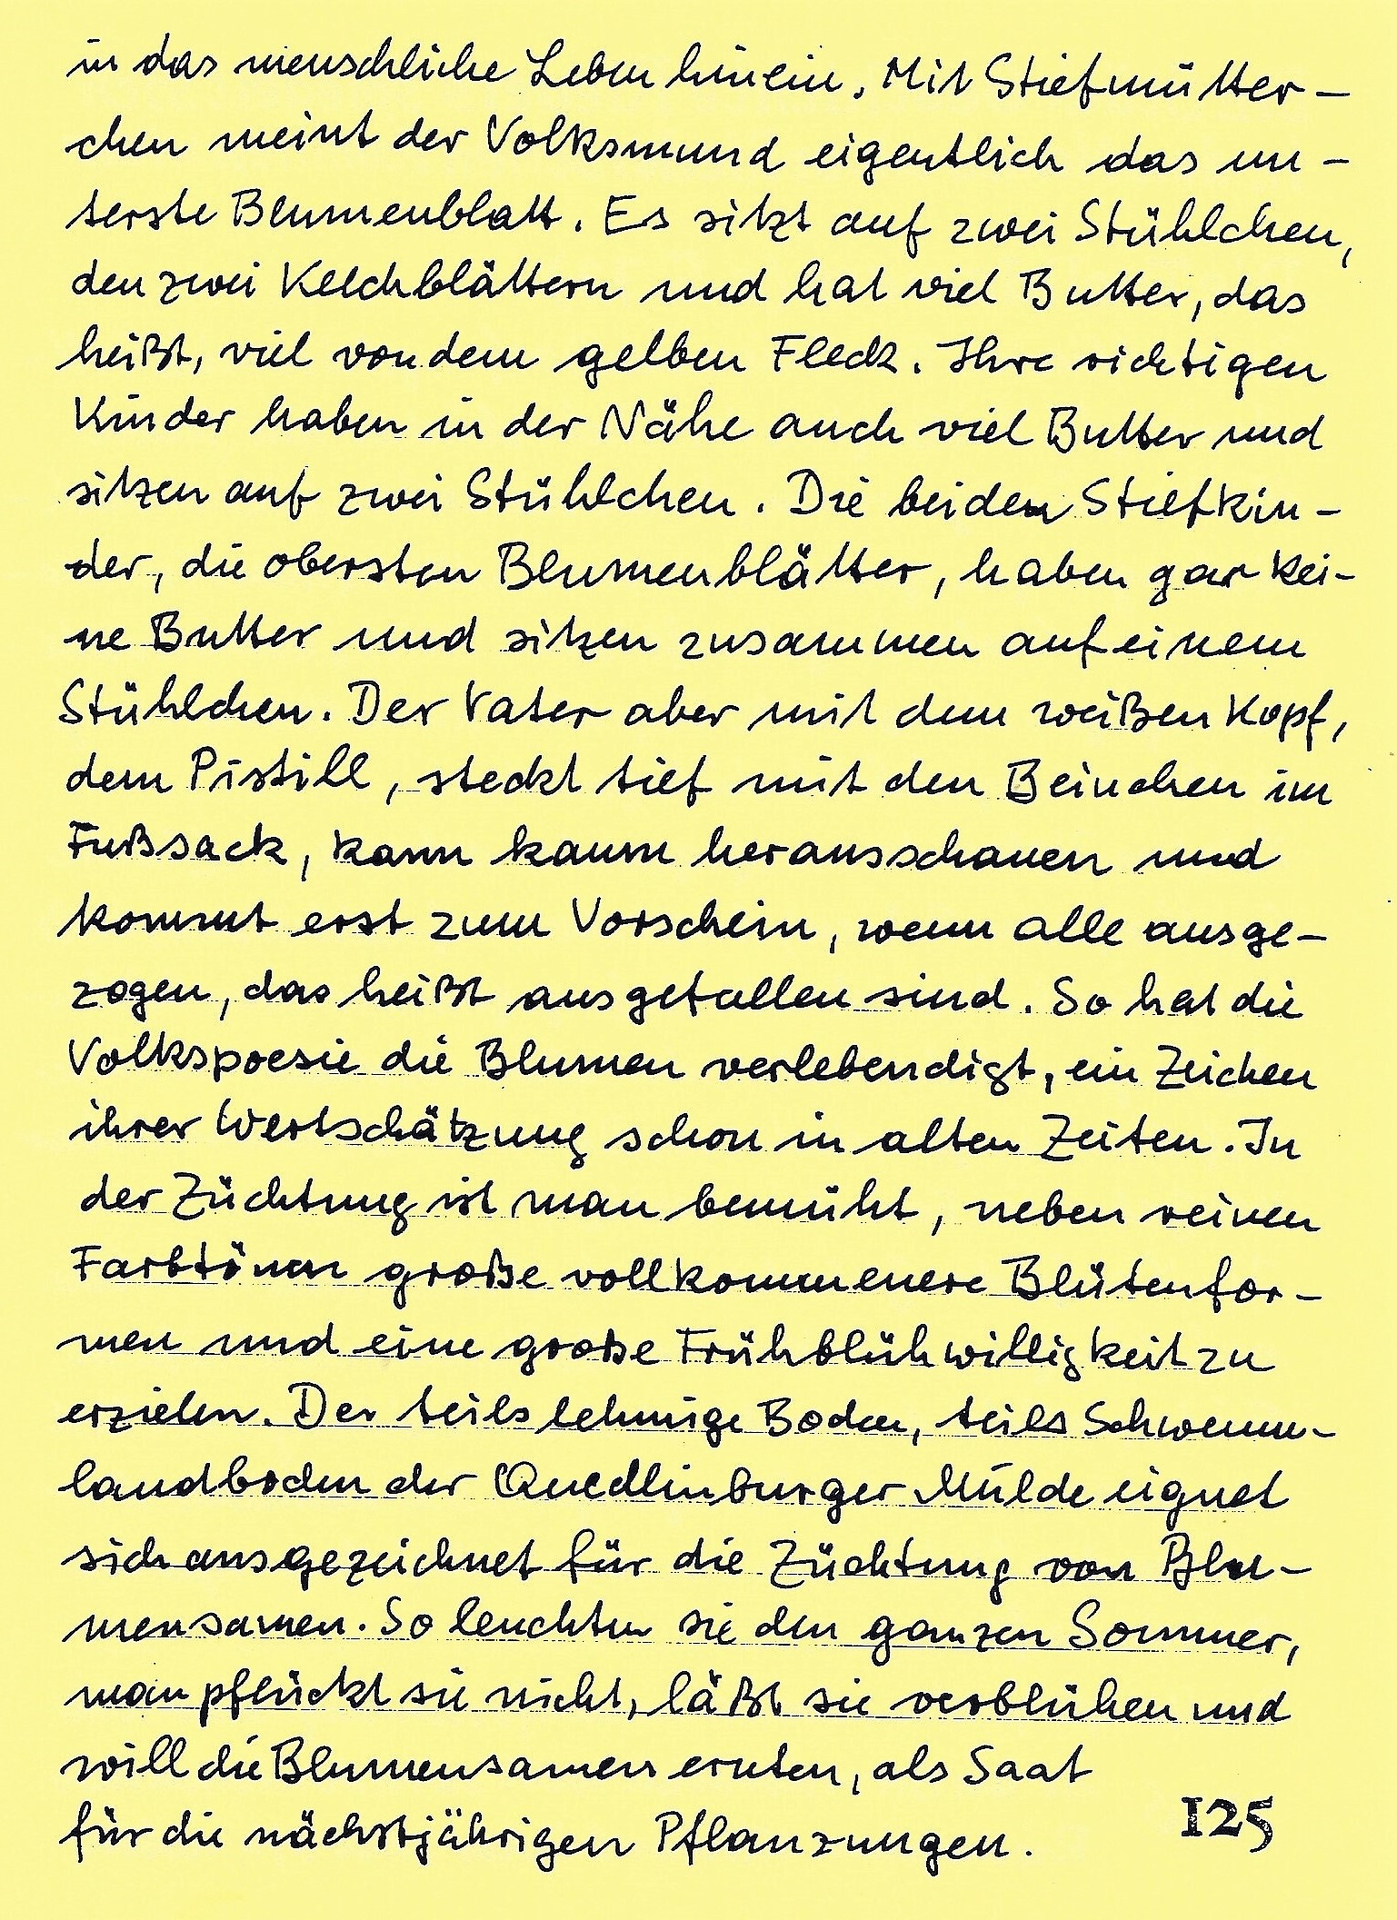 in das menschliche Leben hinein. Mit Stiefmütter-
chen meint der Volksmund eigentlich das un-
terste Blumenblatt. Es sitzt auf zwei Stühlchen,
den zwei Kelchblättern und hat viel Butter, das
heißt, viel von dem gelben Fleck. Ihre richtigen
Kinder haben in der Nähe auch viel Butter und
sitzen auf zwei Stühlchen. Die beiden Stiefkin-
der, die obersten Blumenblätter, haben gar kei-
ne Butter und sitzen zusammen auf einem
Stühlchen. Der Vater aber mit dem weißen Kopf,
dem Pistill, steckt tief mit den Beinchen im
Fußsack, kann kaum herausschauen und
kommt erst zum Vorschein, wenn alle ausge-
zogen, das heißt ausgefallen sind. So hat die
Volkspoesie die Blumen verlebendigt, ein Zeichen
ihrer Wertschätzung schon in alten Zeiten. In
der Züchtung ist man bemüht, neben reinen
Farbtönen große vollkommenere Blütenfor-
men und eine große Frühblühwilligkeit zu
erzielen. Der teils lehmige Boden, teils Schwemm-
landboden der Quedlinburger Mulde eignet
sich ausgezeichnet für die Züchtung von Blu-
mensamen. So leuchten sie den ganzen Sommer,
man pflückt sie nicht, läßt sie verblühen und
will die Blumensamen ernten, als Saat
für die nächstjährigen Pflanzungen.
125